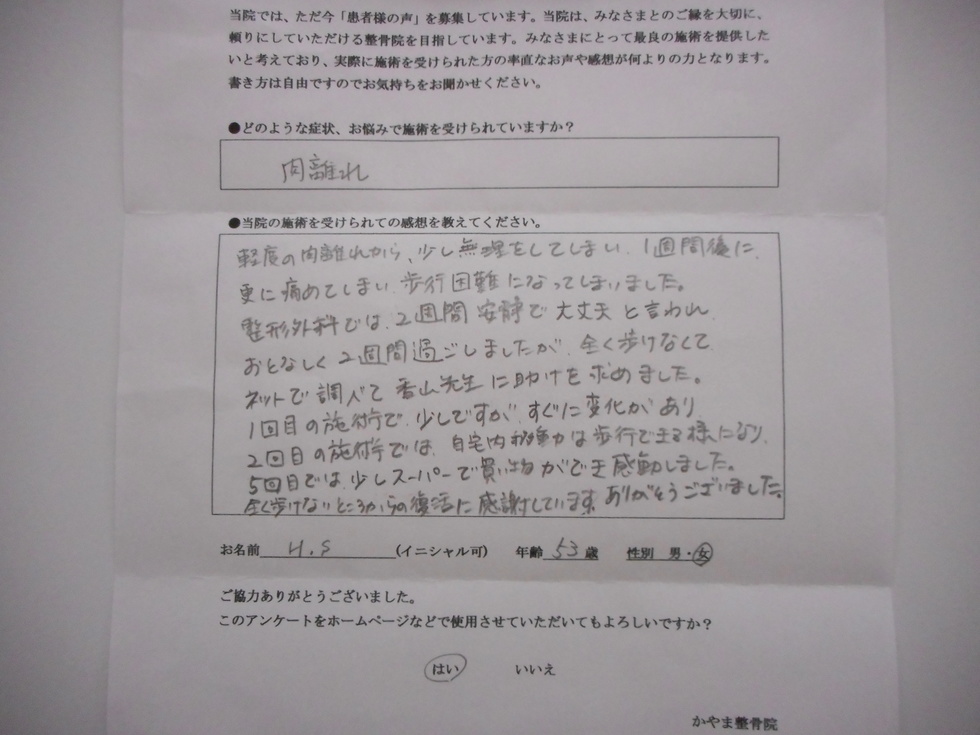 当院では、ただ今「患者様の声」を募集しています。当院は、みなさまとのご縁を大切に、
頼りにしていただける整骨院を目指しています。みなさまにとって最良の施術を提供した
いと考えており、実際に施術を受けられた方の率直なお声や感想が何よりの力となります。
書き方は自由ですのでお気持ちをお聞かせください。
●どのような症状、お悩みで施術を受けられていますか？
肉離れ
●当院の施術を受けられての感想を教えてください。
軽度の肉離れから、少し無理をしてしまい、1週間後に、
更に痛めてしまい、歩行困難になってしまいました。
整形外科では、2週間安静で大丈夫と言われ、
おとなしく2週間過ごしましたが、全く歩けなくて
ネットで調べて香山先生に助けを求めました。
1回目の施術で、少しですが、すぐに変化があり、
2回目の施術では、自宅内移動は歩行できる様になり、
5回目では、少しスーパーで買い物ができ感動しました。
全く歩けないところからの復活に感謝しています。ありがとうございました。
お名前 H.S (イニシャル可) 年齢 53 歳 性別 男・女
ご協力ありがとうございました。
このアンケートをホームページなどで使用させていただいてもよろしいですか？
はい いいえ
かやま整骨院